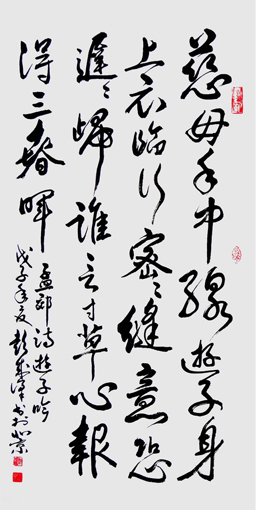 慈母手中線遊子身
上衣臨行密々縫意恐
遲々歸誰言寸草心報
得三春暉 孟郊詩遊子吟
戊子年夏彭書於北京